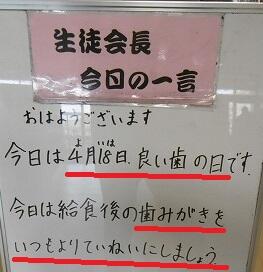 生徒会長
今日の一言
おはようございます
今日は4月18日、良い歯の日です。
よ い は
今日は給食後の歯みがきを
いつもよりていねいにしましょう